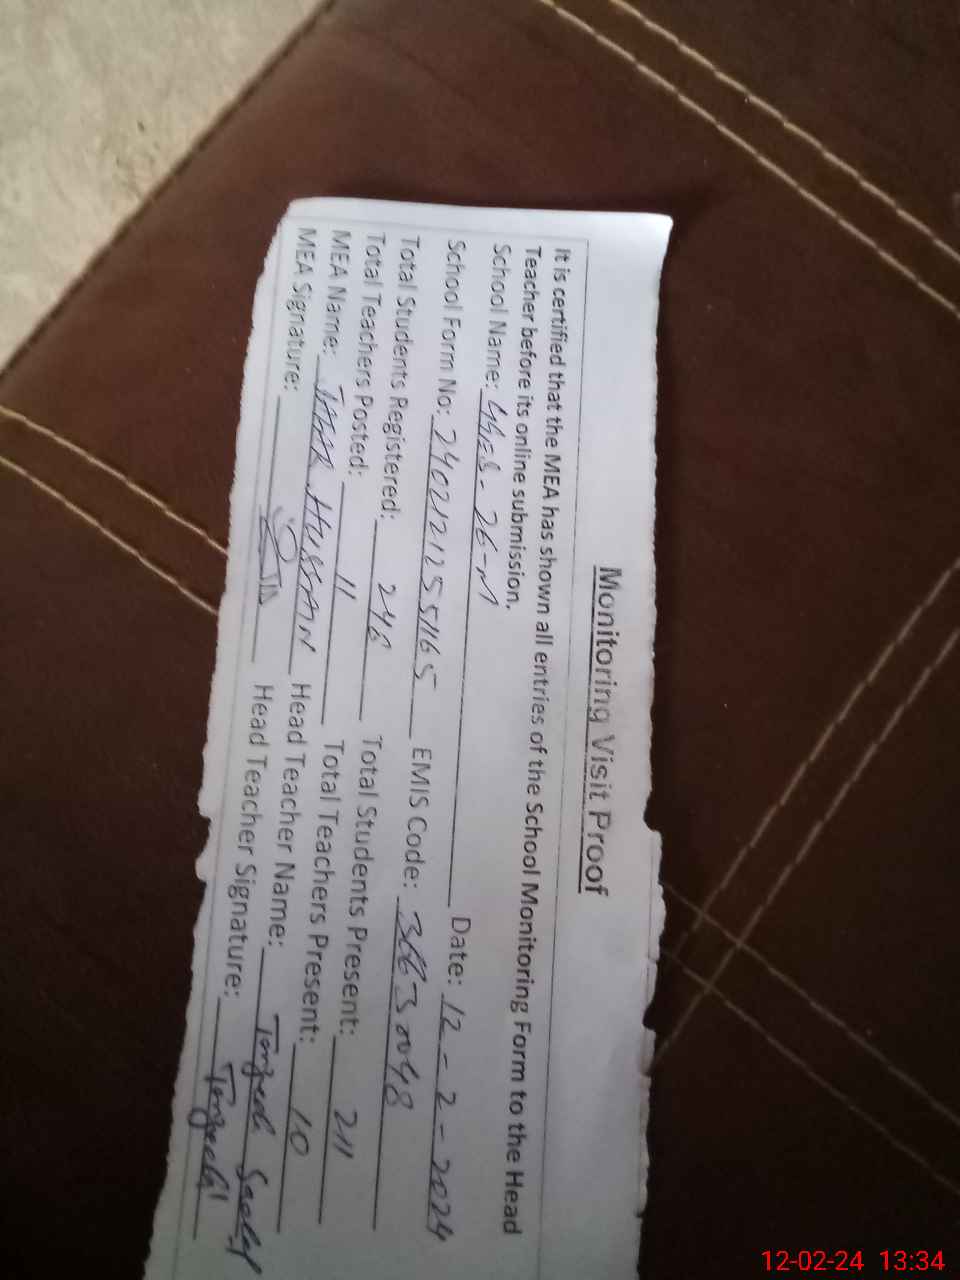 Monitoring Visit Proof
It is certified that the MEA has shown all entries of the School Monitoring Form to the Head
Teacher before its online submission.
School Name: GGES - 26-M Date: 12 - 2 - 2024
School Form No: 24021212555165 EMIS Code:
Total Students Registered: 246 Total Students Present: 211
Total Teachers Posted: 11 Total Teachers Present: 10
MEA Name: HUSSAIN Head Teacher Name:
MEA Signature: Head Teacher Signature:
12-02-24 13:34